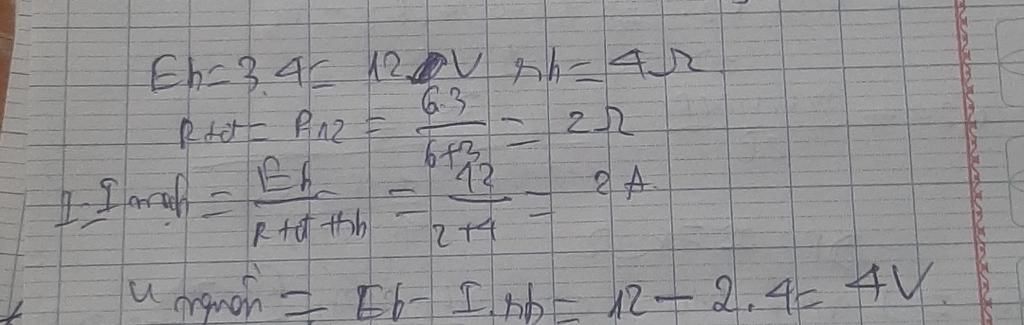 Eb = 3.4 = 12 V rb = 4Ω
Rtđ = R12 = 6.3 / 6+3 = 2Ω
I = I mạch = Eb / Rtđ + rb = 12 / 2+4 = 2 A.
U nguồn = Eb - I.rb = 12 - 2.4 = 4V.